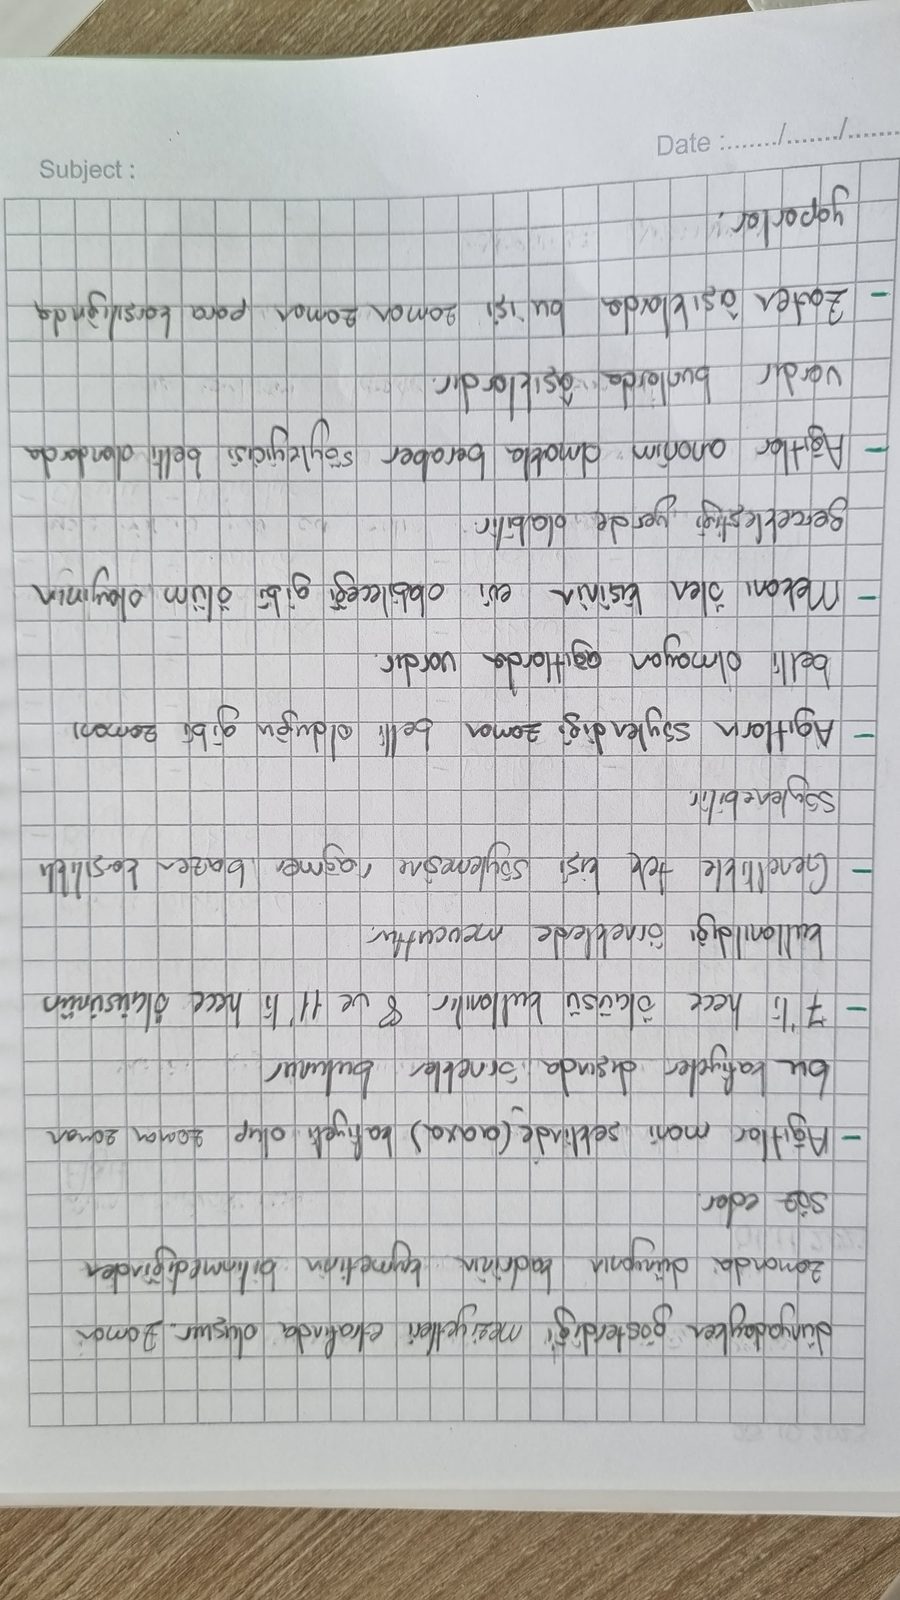 dünyadayken gösterdiği meziyetleri etrafında oluşur. Zaman
zamanda dünyanın kadrinin kıymetinin bilinmediğinden
söz eder.
- Ağıtlar mani şeklinde (aaxa) kafiyeli olup zaman zaman
bu kafiyeler dışında örnekler bulunur
- 7'li hece ölçüsü kullanılır. 8 ve 11'li hece ölçüsünün
kullanıldığı örneklerde mevcuttur.
- Genellikle tek kişi söylemesine rağmen bazen karşılıklı
söylenebilir.
- Ağıtların söylendiği zaman belli olduğu gibi zamanı
belli olmayan ağıtlarda vardır.
- Mekanı ölen kişinin evi olabileceği gibi ölüm olayının
gerçekleştiği yerde olabilir.
- Ağıtlar anonim olmakla beraber söyleyicisi belli olanlarda
vardır bunlarda âşıklardır.
- Zaten âşıklarda bu işi zaman zaman para karşılığında
yaparlar.
Subject :
Date :......./......./.......